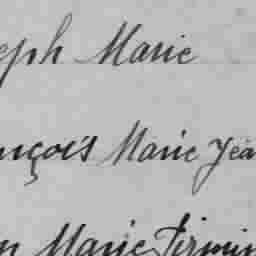 eph Marie
nçois Marie Jea
n Marie Firmin